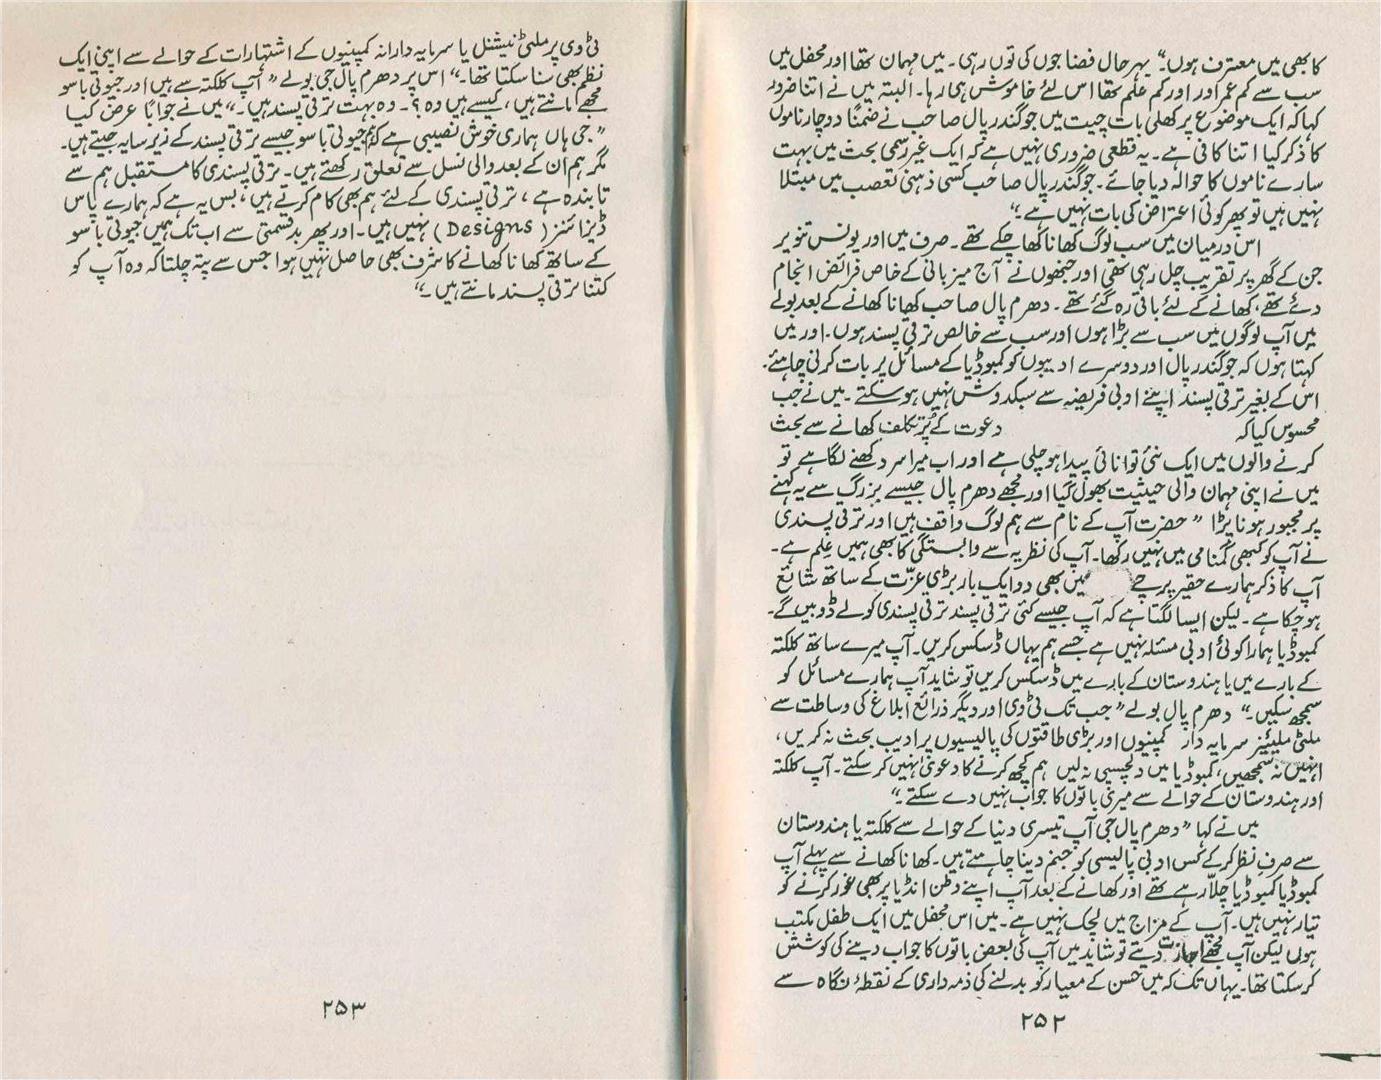 کا بھی میں معترف ہوں۔" بہرحال فضا جوں کی توں رہی۔ میں مہمان تھا اور محفل میں
سب سے کم عمر اور اور کم علم تھا اس لئے خاموش ہی رہا۔ البتہ میں نے اتنا ضرور
کہا کہ ایک موضوع پر کھلی بات چیت میں جوگندر پال صاحب نے ضمناً دو چار ناموں
کا ذکر کیا اتنا کافی ہے۔ یہ قطعی ضروری نہیں ہے کہ ایک غیر رسمی بحث میں بہت
سارے ناموں کا حوالہ دیا جائے۔ جوگندر پال صاحب کسی ذہنی تعصب میں مبتلا
نہیں ہیں تو پھر کوئی اعتراض کی بات نہیں ہے۔"
اس درمیان میں سب لوگ کھانا کھا چکے تھے۔ صرف میں اور یونس تنویر
جن کے گھر پر تقریب چل رہی تھی اور جنھوں نے آج میزبانی کے خاص فرائض انجام
دئے تھے، کھانے کے لئے باقی رہ گئے تھے۔ دھرم پال صاحب کھانا کھانے کے بعد بولے
میں آپ لوگوں میں سب سے بڑا ہوں اور سب سے خالص ترقی پسند ہوں۔ اور میں
کہتا ہوں کہ جوگندر پال اور دوسرے ادیبوں کو کمبوڈیا کے مسائل پر بات کرنی چاہئے۔
اس کے بغیر ترقی پسند اپنے ادبی فریضہ سے سبکدوش نہیں ہو سکتے۔ میں نے جب
محسوس کیا کہ دعوت کے پُر تکلف کھانے سے بحث
کرنے والوں میں ایک نئی توانائی پیدا ہو چلی ہے اور اب میرا سر دکھنے لگا ہے تو
میں نے اپنی مہمان والی حیثیت بھول گیا اور مجھے دھرم پال جیسے بزرگ سے یہ کہنے
پر مجبور ہونا پڑا "حضرت آپ کے نام سے ہم لوگ واقف ہیں اور ترقی پسندی
نے آپ کو کبھی گمنامی میں نہیں رکھا۔ آپ کی نظریہ سے وابستگی کا بھی ہمیں علم ہے۔
آپ کا ذکر ہمارے حقیر پرچے میں بھی دو ایک بار بڑی عزّت کے ساتھ شائع
ہو چکا ہے۔ لیکن ایسا لگتا ہے کہ آپ جیسے کئی ترقی پسند ترقی پسندی کو لے ڈوبیں گے۔
کمبوڈیا ہمارا کوئی ادبی مسئلہ نہیں ہے جسے ہم یہاں ڈسکس کریں۔ آپ میرے ساتھ کلکتہ
کے بارے میں یا ہندوستان کے بارے میں ڈسکس کریں تو شاید آپ ہمارے مسائل کو
سمجھ سکیں۔" دھرم پال بولے "جب تک ٹی وی اور دیگر ذرائع ابلاغ کی وساطت سے
ملٹی ملینئز سرمایہ دار کمپنیوں اور بڑی طاقتوں کی پالیسیوں پر ادیب بحث نہ کریں،
انہیں نہ سمجھیں، کمبوڈیا میں دلچسپی نہ لیں ہم کچھ کرنے کا دعویٰ نہیں کر سکتے۔ آپ کلکتہ
اور ہندوستان کے حوالے سے میری باتوں کا جواب نہیں دے سکتے۔"
میں نے کہا "دھرم پال جی آپ تیسری دنیا کے حوالے سے کلکتہ یا ہندوستان
سے صرفِ نظر کر کے کس ادبی پالیسی کو جنم دینا چاہتے ہیں۔ کھانا کھانے سے پہلے آپ
کمبوڈیا کمبوڈیا چلّا رہے تھے اور کھانے کے بعد آپ اپنے وطن انڈیا پر بھی غور کرنے کو
تیار نہیں ہیں۔ آپ کے مزاج میں لچک نہیں ہے۔ میں اس محفل میں ایک طفل مکتب
ہوں لیکن آپ مجھے اجازت دیتے تو شاید میں آپ کی بعض باتوں کا جواب دینے کی کوشش
کر سکتا تھا۔ یہاں تک کہ میں حسن کے معیار کو بدلنے کی ذمہ داری کے نقطۂ نگاہ سے
۲۵۲
ٹی وی پر ملٹی نیشنل یا سرمایہ دارانہ کمپنیوں کے اشتہارات کے حوالے سے اپنی ایک
نظم بھی سنا سکتا تھا۔" اس پر دھرم پال جی بولے "آپ کلکتہ سے ہیں اور جیوتی باسو
مجھے مانتے ہیں، کیسے ہیں وہ؟۔ وہ بہت ترقی پسند ہیں۔" میں نے جواباً عرض کیا
"جی ہاں ہماری خوش نصیبی ہے کہ ہم جیوتی باسو جیسے ترقی پسند کے زیر سایہ جیتے ہیں۔
مگر ہم ان کے بعد والی نسل سے تعلق رکھتے ہیں۔ ترقی پسندی کا مستقبل ہم سے
تابندہ ہے، ترقی پسندی کے لئے ہم بھی کام کرتے ہیں، بس یہ ہے کہ ہمارے پاس
ڈیزائنز (Designs) نہیں ہیں۔ اور پھر بدقسمتی سے اب تک ہمیں جیوتی باسو
کے ساتھ کھانا کھانے کا شرف بھی حاصل نہیں ہوا جس سے پتہ چلتا کہ وہ آپ کو
کتنا ترقی پسند مانتے ہیں۔"
۲۵۳